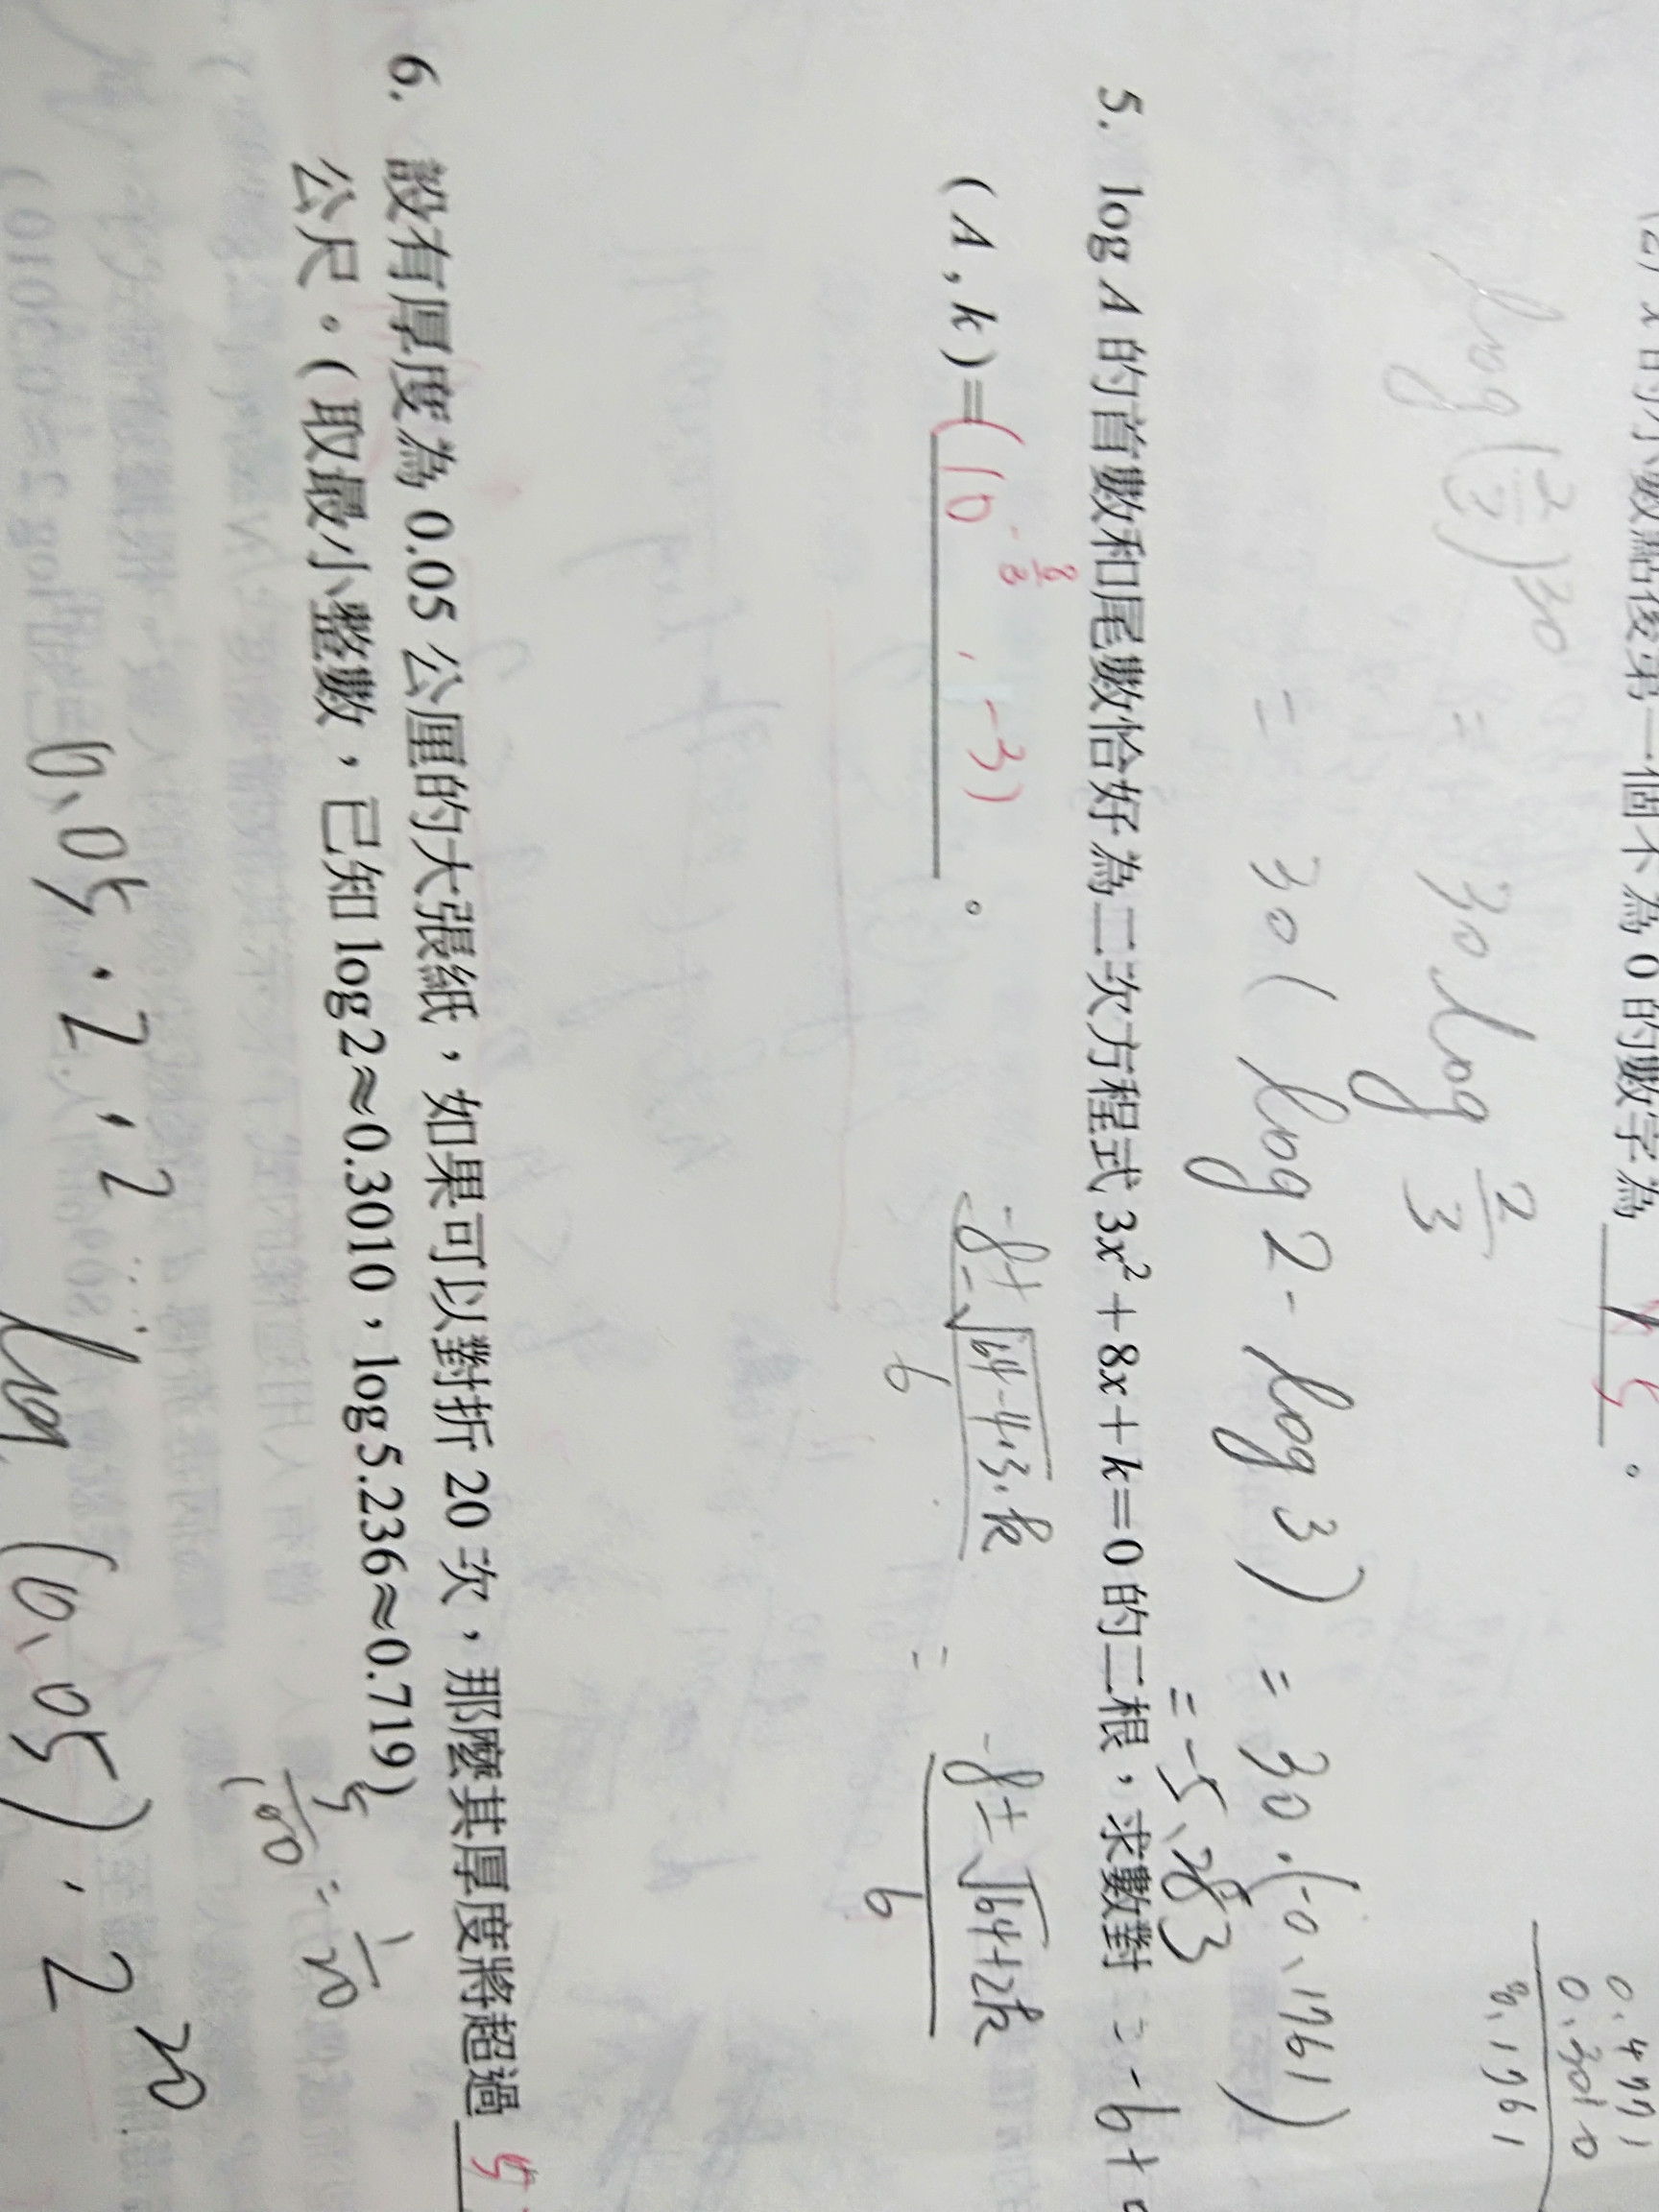 x 的小數點後第一個不為 0 的數字為 5 。
0.4771
0.3010
0.1761
log(2/3)30 = 30 log 2/3
= 30 ( log 2 - log 3 ) = 30.(-0.1761)
= -5.283 = -6+
5. log A 的首數和尾數恰好為二次方程式 3x² + 8x + k = 0 的二根,求數對
(A , k) = (10^-8/3 , -3) 。
-8±√64-4·3·k
6
=
-8±√64+2k
6
6. 設有厚度為 0.05 公厘的大張紙,如果可以對折 20 次,那麼其厚度將超過 5
公尺。(取最小整數,已知 log2≈0.3010,log5.236≈0.719)
5/100 = 1/20
0.05 · 2 · 2 ...
log (0.05) · 2^20